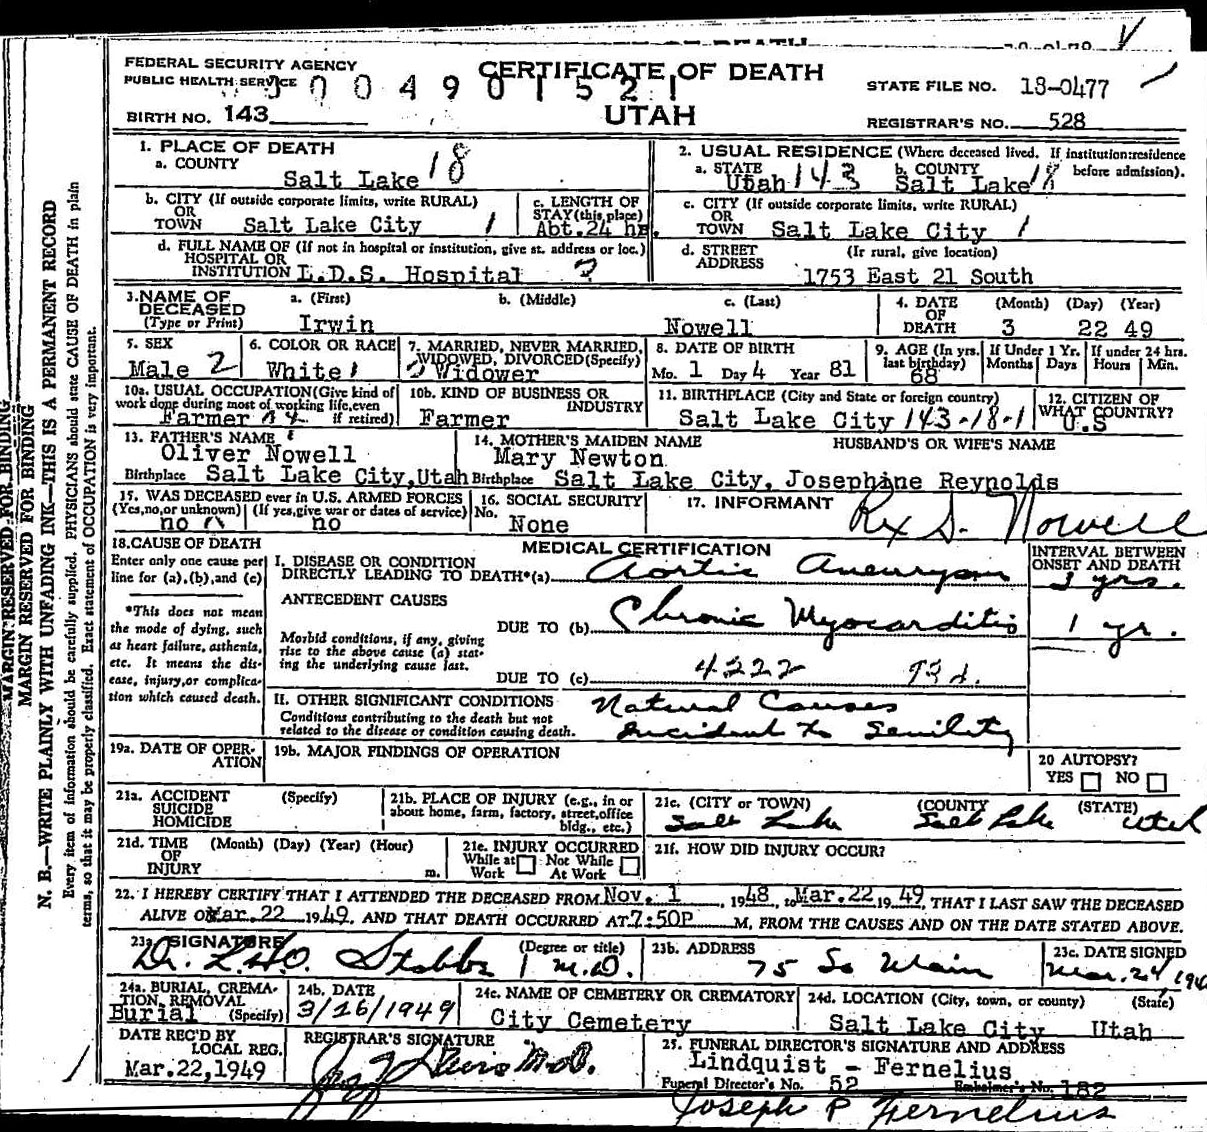 FEDERAL SECURITY AGENCY
PUBLIC HEALTH SERVICE
CERTIFICATE OF DEATH
004901521
STATE FILE NO. 18-0477
BIRTH NO. 143
UTAH
REGISTRAR'S NO. 528
MARGIN RESERVED FOR BINDING
MARGIN RESERVED FOR BINDING
N. B.—WRITE PLAINLY WITH UNFADING INK—THIS IS A PERMANENT RECORD
Every item of information should be carefully supplied. PHYSICIANS should state CAUSE OF DEATH in plain
terms, so that it may be properly classified. Exact statement of OCCUPATION is very important.
1. PLACE OF DEATH
a. COUNTY
Salt Lake 18
2. USUAL RESIDENCE (Where deceased lived. If institution:residence
before admission).
a. STATE Utah 143 b. COUNTY Salt Lake 18
b. CITY (If outside corporate limits, write RURAL)
OR
TOWN Salt Lake City 1
c. LENGTH OF
STAY (this place)
Abt.24 hr.
c. CITY (If outside corporate limits, write RURAL)
OR
TOWN Salt Lake City 1
d. FULL NAME OF (If not in hospital or institution, give st. address or loc.)
HOSPITAL OR
INSTITUTION L.D.S. Hospital 2
d. STREET (If rural, give location)
ADDRESS
1753 East 21 South
3. NAME OF
DECEASED
(Type or Print)
a. (First) b. (Middle) c. (Last)
Irwin Nowell
4. DATE (Month) (Day) (Year)
OF
DEATH 3 22 49
5. SEX
Male 2
6. COLOR OR RACE
White 1
7. MARRIED, NEVER MARRIED,
WIDOWED, DIVORCED (Specify)
Widower
8. DATE OF BIRTH
Mo. 1 Day 4 Year 81
9. AGE (In yrs.
last birthday)
68
If Under 1 Yr.
Months Days
If under 24 hrs.
Hours Min.
10a. USUAL OCCUPATION (Give kind of
work done during most of working life, even
if retired)
Farmer
10b. KIND OF BUSINESS OR
INDUSTRY
Farmer
11. BIRTHPLACE (City and State or foreign country)
Salt Lake City 143-18-1
12. CITIZEN OF
WHAT COUNTRY?
U.S
13. FATHER'S NAME
Oliver Nowell
Birthplace Salt Lake City,Utah
14. MOTHER'S MAIDEN NAME
Mary Newton
Birthplace Salt Lake City,
HUSBAND'S OR WIFE'S NAME
Josephine Reynolds
15. WAS DECEASED ever in U.S. ARMED FORCES
(Yes,no,or unknown) (If yes, give war or dates of service)
no no
16. SOCIAL SECURITY
No.
None
17. INFORMANT Rex S. Nowell
18. CAUSE OF DEATH
Enter only one cause per
line for (a), (b), and (c)
*This does not mean
the mode of dying, such
as heart failure, asthenia,
etc. It means the dis-
ease, injury, or complica-
tion which caused death.
MEDICAL CERTIFICATION
INTERVAL BETWEEN
ONSET AND DEATH
I. DISEASE OR CONDITION
DIRECTLY LEADING TO DEATH*(a) Aortic Aneurysm
3 yrs.
ANTECEDENT CAUSES
DUE TO (b) Chronic Myocarditis
1 yr.
Morbid conditions, if any, giving
rise to the above cause (a) stat-
ing the underlying cause last.
DUE TO (c) 4222 93d.
II. OTHER SIGNIFICANT CONDITIONS
Conditions contributing to the death but not
related to the disease or condition causing death.
Natural Causes
Incident to Senility
19a. DATE OF OPER-
ATION
19b. MAJOR FINDINGS OF OPERATION
20 AUTOPSY?
YES NO
21a. ACCIDENT (Specify)
SUICIDE
HOMICIDE
21b. PLACE OF INJURY (e.g., in or
about home, farm, factory, street, office
bldg., etc.)
21c. (CITY or TOWN) (COUNTY (STATE)
Salt Lake Salt Lake Utah
21d. TIME (Month) (Day) (Year) (Hour)
OF
INJURY m.
21e. INJURY OCCURRED
While at Work Not While At Work
21f. HOW DID INJURY OCCUR?
22. I HEREBY CERTIFY THAT I ATTENDED THE DECEASED FROM Nov. 1, 1948, to Mar.22,1949, THAT I LAST SAW THE DECEASED
ALIVE ON Mar.22 1949, AND THAT DEATH OCCURRED AT 7:50P M., FROM THE CAUSES AND ON THE DATE STATED ABOVE.
23a. SIGNATURE (Degree or title)
Dr. L.H.O. Stobbe M.D.
23b. ADDRESS
75 So Main
23c. DATE SIGNED
Mar. 24, 194
24a. BURIAL, CREMA-
TION, REMOVAL
(Specify)
Burial
24b. DATE
3/26/1949
24c. NAME OF CEMETERY OR CREMATORY
City Cemetery
24d. LOCATION (City, town, or county) (State)
Salt Lake City Utah
DATE REC'D BY
LOCAL REG.
Mar.22,1949
REGISTRAR'S SIGNATURE
M.D.
25. FUNERAL DIRECTOR'S SIGNATURE AND ADDRESS
Lindquist - Fernelius
Funeral Director's No. 52 Embalmer's No. 182
Joseph P Fernelius